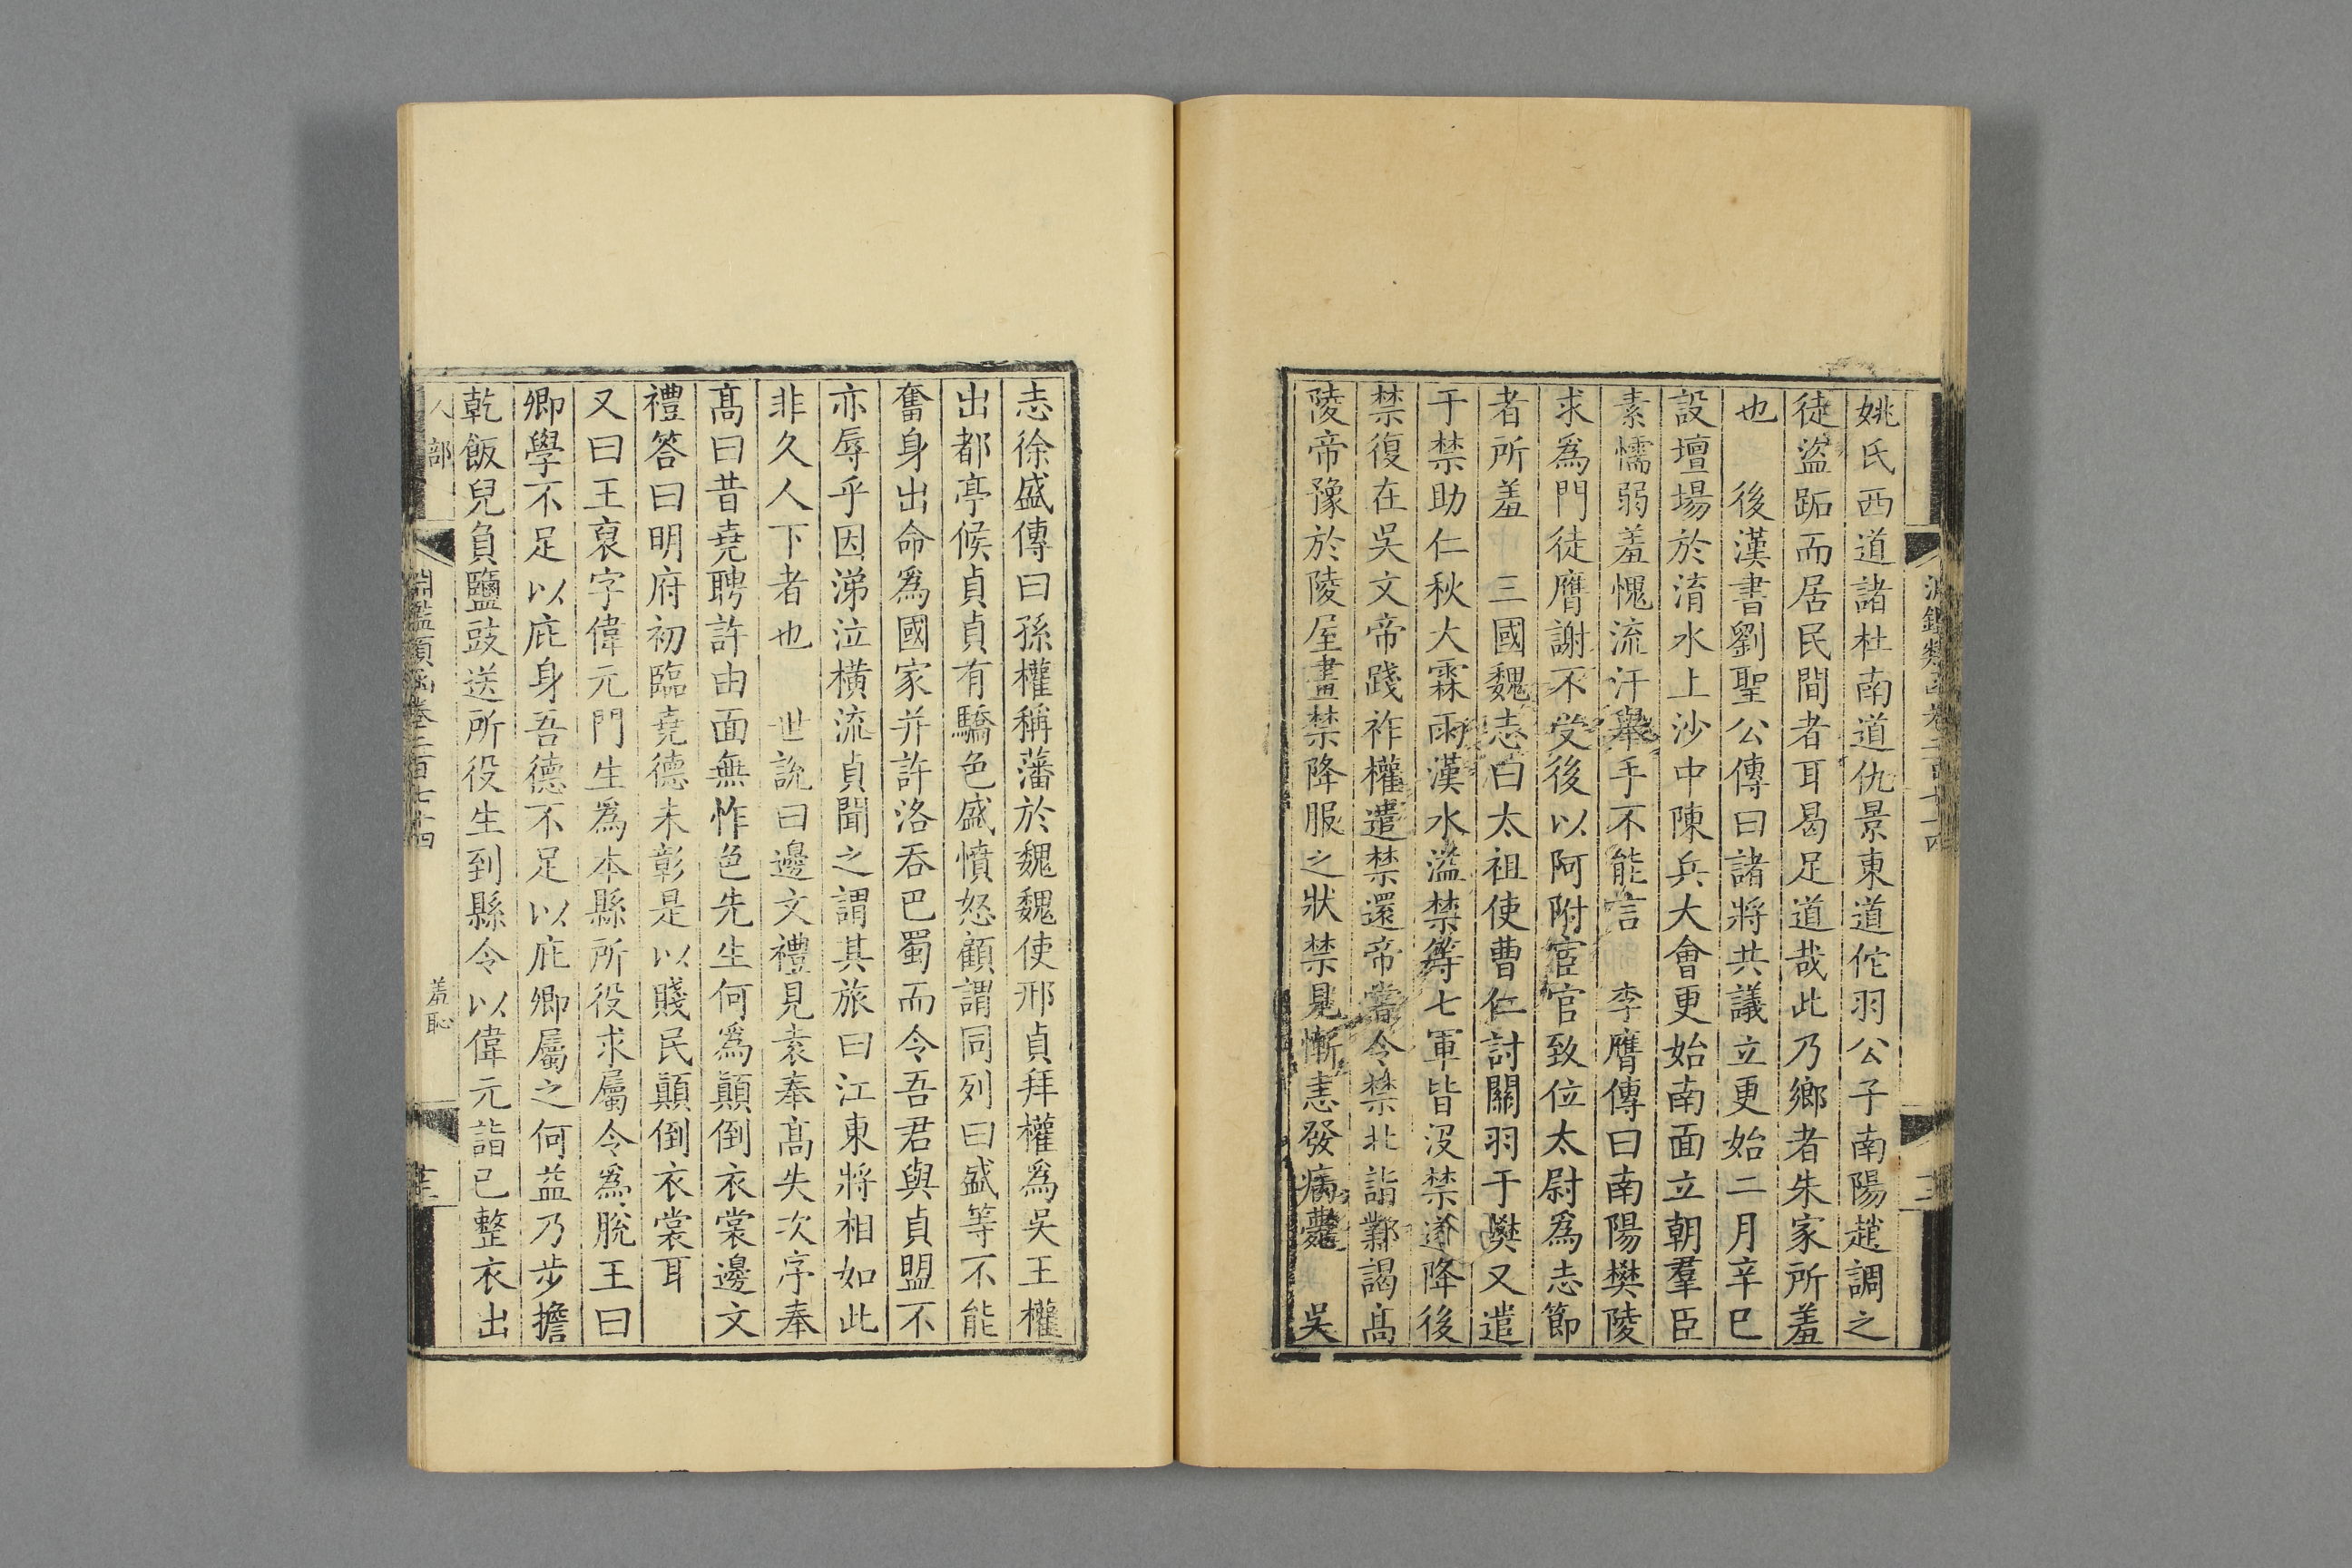 姚氏西道諸杜南道仇景東道佗羽公子南陽趙調之
徒盜跖而居民間者耳曷足道哉此乃鄉者朱家所羞
也　後漢書劉聖公傳曰諸將共議立更始二月辛巳
設壇場於淯水上沙中陳兵大會更始南面立朝羣臣
素懦弱羞愧流汗舉手不能言　李膺傳曰南陽樊陵
求爲門徒膺謝不受後以阿附宦官致位太尉爲志節
者所羞　三國魏志曰太祖使曹仁討關羽于樊又遣
于禁助仁秋大霖雨漢水溢禁等七軍皆沒禁遂降後
禁復在吳文帝踐祚權遣禁還帝嘗令禁北詣鄴謁高
陵帝豫於陵屋畫禁降服之狀禁見慚恚發病薨　吳
志徐盛傳曰孫權稱藩於魏魏使邢貞拜權爲吳王權
出都亭候貞貞有驕色盛憤怒顧謂同列曰盛等不能
奮身出命爲國家并許洛吞巴蜀而令吾君與貞盟不
亦辱乎因涕泣橫流貞聞之謂其旅曰江東將相如此
非久人下者也　世說曰邊文禮見袁奉高失次序奉
高曰昔堯聘許由面無怍色先生何爲顛倒衣裳邊文
禮答曰明府初臨堯德未彰是以賤民顛倒衣裳耳
又曰王裒字偉元門生爲本縣所役求屬令爲脫王曰
卿學不足以庇身吾德不足以庇卿屬之何益乃步擔
乾飯兒負鹽豉送所役生到縣令以偉元詣已整衣出
人部
淵鑑類函卷二百七十四
羞恥